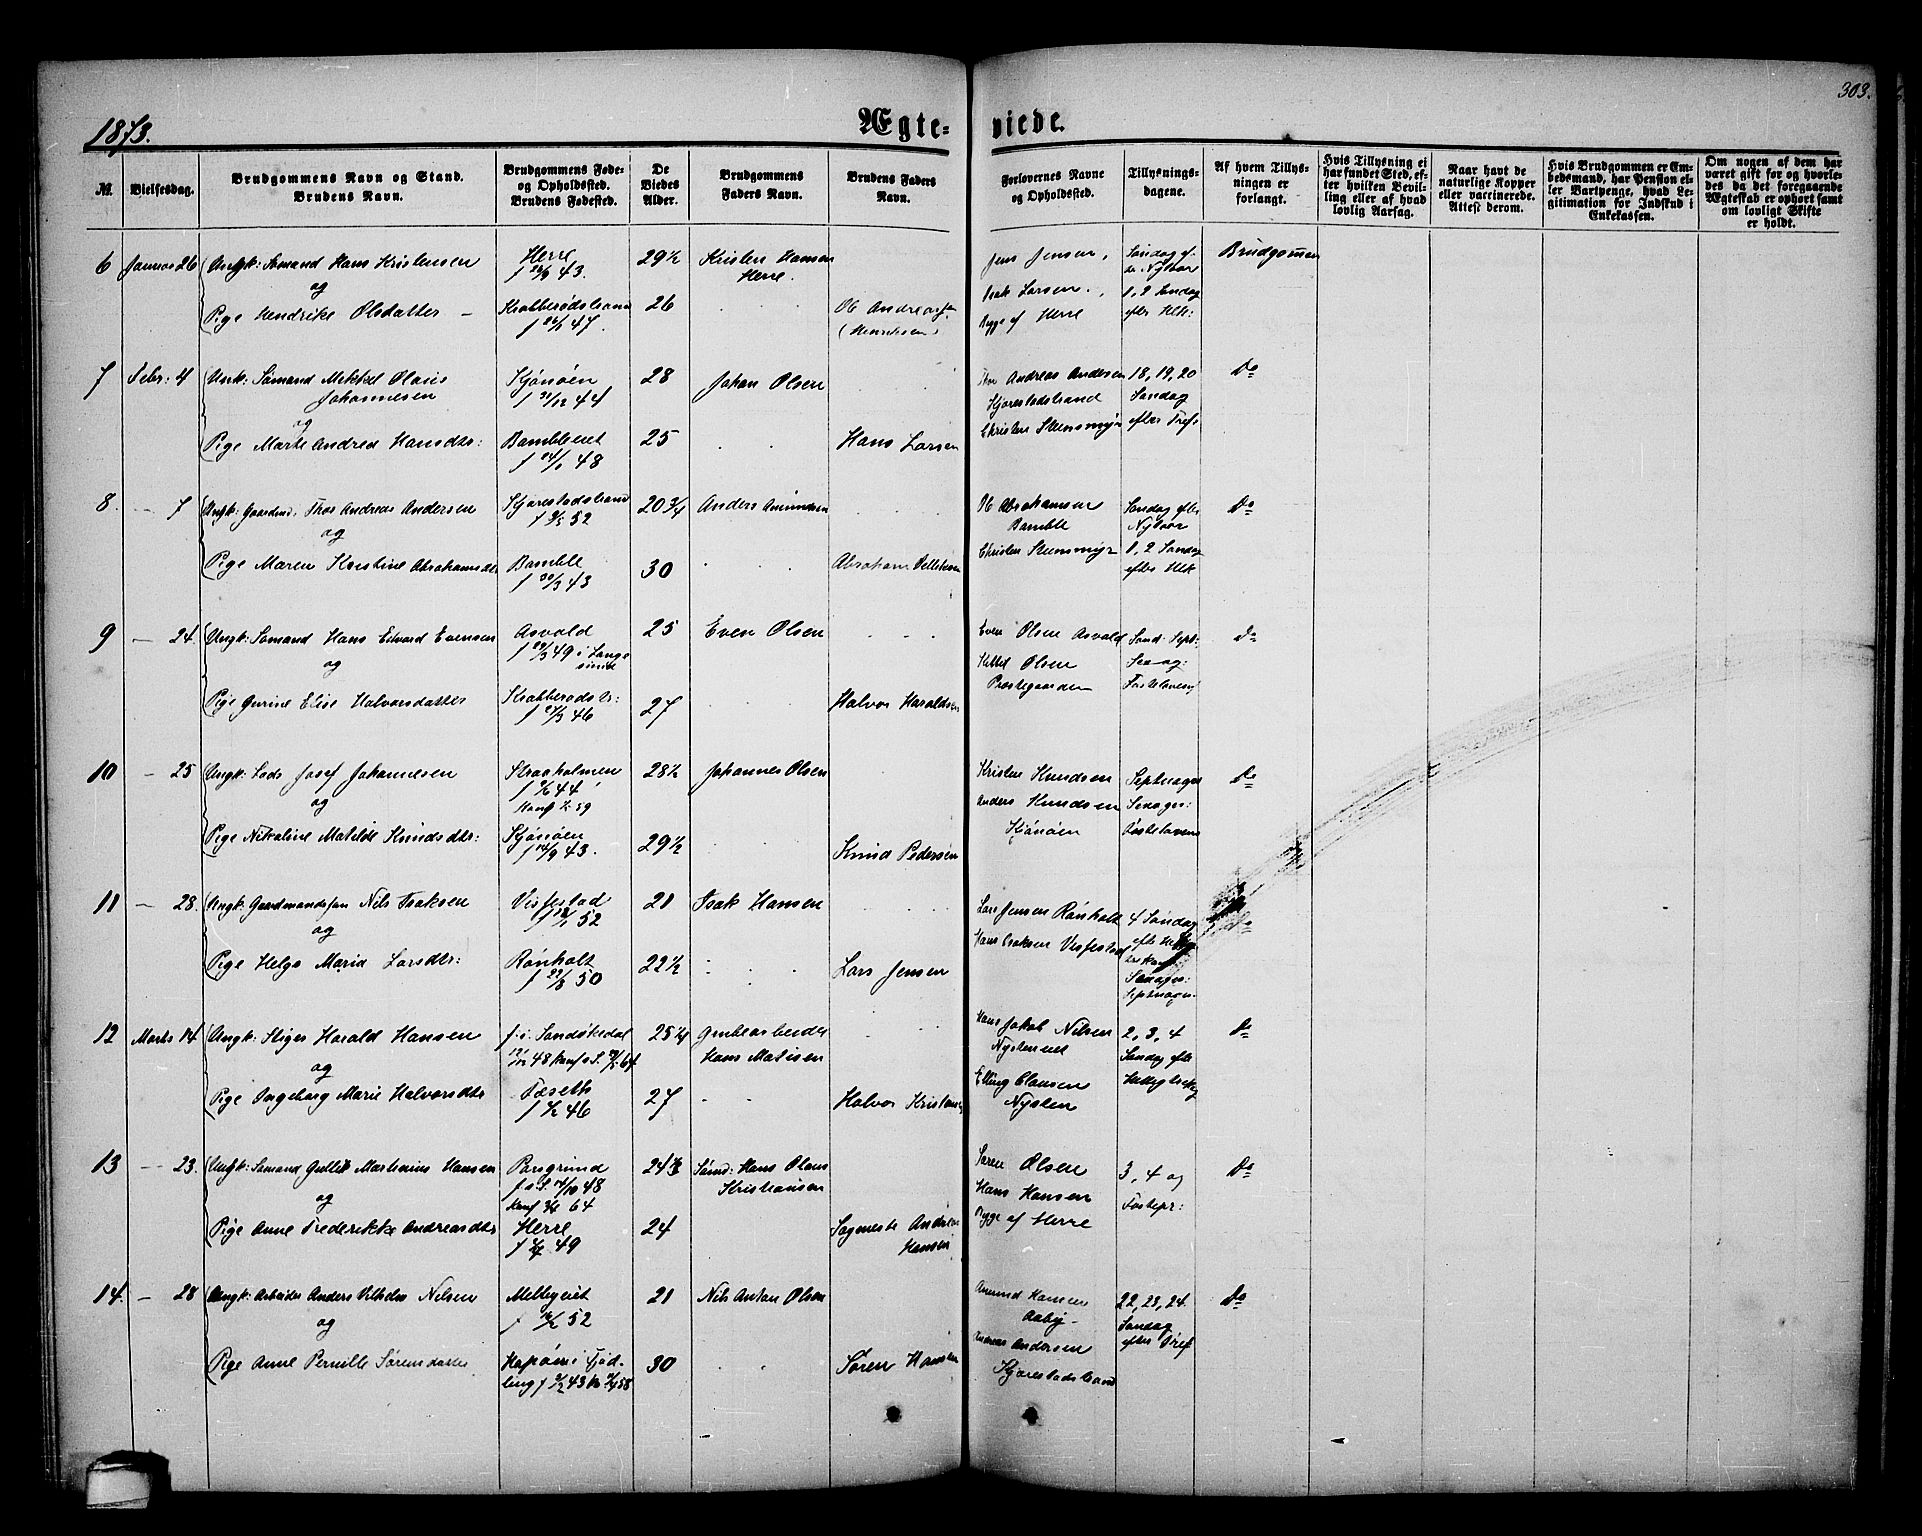 303.
1873.
Ægte-
viede.
№
Vielsesdag.
Brudgommens Navn og Stand.
Brudens Navn.
Brudgommens Føde-
og Opholdssted.
Brudens Fødested.
De
Viedes
Alder.
Brudgommens
Faders Navn.
Brudens Faders
Navn.
Forlovernes Navne
og Opholdssted.
Tillysnings-
dagene.
Af hvem Tillys-
ningen er
forlangt.
Hvis Tillysning ei
har fundet Sted, ef-
ter hvilken Bevil-
ling eller af hvad
lovlig Aarsag.
Naar havt de
naturlige Kopper
eller vaccinerede.
Attest derom.
Hvis Brudgommen er Em-
bedsmand, har Pension el-
ler Vartpenge, hvad Le-
gitimation for Indskud i
Enkekassen.
Om nogen af dem har
været gift før og hvorle-
des da det foregaaende
Ægteskab er ophørt samt
om lovligt Skifte
er holdt.
6 Januar 26 Ungk: Sømand Hans Kristensen
og
Pige Hendrike Olsdatter
Herre
43.
Krabberødstrand
47.
29½
26
Kristen Hansen
Herre.
Jens Jensen,
Isak Larsen,
Begge af Herre
Søndag ef.
Nytaar
1, 2 Søndag
efter HK:
Brudgommen
7 Febr: 4 Ungk: Sømand Mikkel Olaus
Johannesen
og
Pige Marte Andrea Hansdtr:
44
48
28
25
Johan Olsen
Hans Larsen
Andreas Andersen
Christen Stensmyr
18, 19, 20
Søndag
efter Tref:
Do
8. - 7 Ungk: Gaardmd. Thor Andreas Andersen
og
Pige Maren Kristine Abrahamsdtr
52
Bamble
43
20¾
30
Anders Amundsen
Abraham
Ol Abrahamsen
Bamble
Christen Stensmyr
Søndag efter
Nytaar
1, 2 Sønd
efter HK
Do
9 - 24. Ungk: Sømand Hans Edvard Evensen
og
Pige Gurine Elise Halvorsdatter
Asvald
49 i Lange
sund
46
25
27
Even Olsen
Halvor Haraldsen
Even Olsen Asvald
Kittel Olsen
Præstegaarden
Sønd: Sept:
Sexag:
Fastelavens
Do
10 - 25 Ungk: Lods Josef Johannesen
og
Pige Nikoline Matilde Knudsdtr:
Straaholmen
44
59
43.
28½
29½
Johannes Olsen
Knud Pedersen
Kristen Knudsen
Anders Knudsen
Septuages
Sexages:
Fastelavens
Do
11 - 28. Ungk: Gaardmandssøn Nils Isaksen
og
Pige Helga Maria Larsdtr:
Vissestad
52
Rønholt
50
21
22½
Isak Hansen
Lars Jensen
Lars Jensen Rønholt
Hans Isaksen Vissestad
4 Søndag
Sexages:
Septuages.
Do
12 Marts 14 Ungk: Stiger Harald Hansen
og
Pige Ingeborg Marie Halvorsdtr
f: i Sandøkedal
48
Tæseth
46
25¼
27
Grubearbeider
Hans Matisen
Halvor Kristensen
Hans Jakob Nilsen
Elling Clausen
Nysten
2, 3, 4
Søndag efter
Do
13 - 23. Ungk: Sømand Gullik Martinius Hansen
og
Pige Anne Frederikke Andreasdtr
Porsgrund
48
64
Herre
49
24½
24
Sømd: Hans Olaus
Kristiansen
Sagmester Andreas
Hansen
Søren Olsen
Hans Hansen
Begge af Herre
3, 4 og
Fastepr:
Do
14. - 28 Ungk: Arbeider Anders Vilhelm Nelsen
og
Pige Anne Pernille Sørensdatter
52
21
30
Nils Anton Olsen
Søren Hansen
Amund Hansen
Aaby
Andreas Andersen
22, 23, 24
Søndag
efter Tref
Do